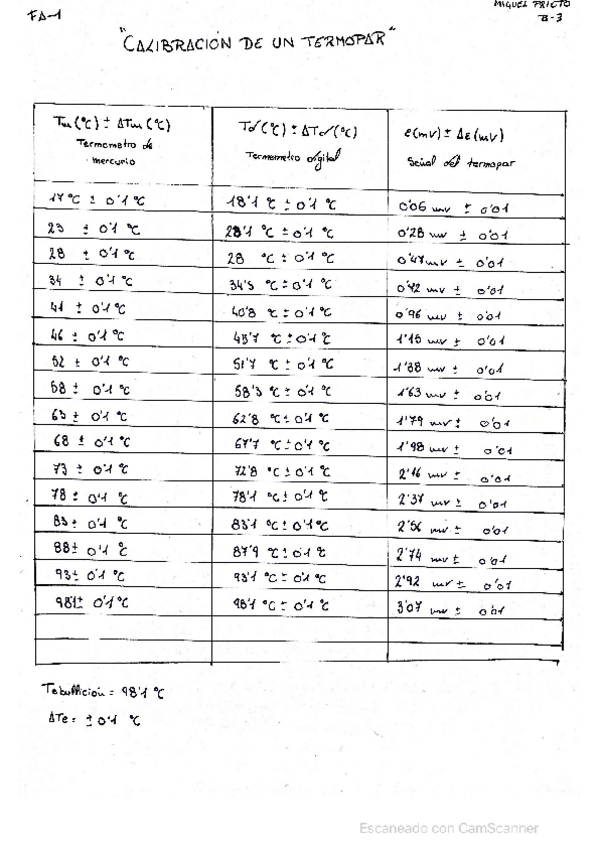 FA-1
MIGUEL PRIETO
B-3
"CALIBRACIÓN DE UN TERMOPAR"
Tm (ºC) ± ΔTm (ºC) Td (ºC) ± ΔTd (ºC) ε (mv) ± Δε (mv)
Termometro de mercurio Termometro digital Señal del termopar
17 ºC ± 0'1 ºC 18'1 ºC ± 0'1 ºC 0'06 mv ± 0'01
23 ± 0'1 ºC 23'1 ºC ± 0'1 ºC 0'28 mv ± 0'01
28 ± 0'1 ºC 28 ºC ± 0'1 ºC 0'47 mv ± 0'01
34 ± 0'1 ºC 34'5 ºC ± 0'1 ºC 0'72 mv ± 0'01
41 ± 0'1 ºC 40'8 ºC ± 0'1 ºC 0'96 mv ± 0'01
46 ± 0'1 ºC 45'7 ºC ± 0'1 ºC 1'15 mv ± 0'01
52 ± 0'1 ºC 51'7 ºC ± 0'1 ºC 1'38 mv ± 0'01
58 ± 0'1 ºC 58'3 ºC ± 0'1 ºC 1'63 mv ± 0'01
63 ± 0'1 ºC 62'8 ºC ± 0'1 ºC 1'79 mv ± 0'01
68 ± 0'1 ºC 67'7 ºC ± 0'1 ºC 1'98 mv ± 0'01
73 ± 0'1 ºC 72'8 ºC ± 0'1 ºC 2'16 mv ± 0'01
78 ± 0'1 ºC 78'1 ºC ± 0'1 ºC 2'37 mv ± 0'01
83 ± 0'1 ºC 83'1 ºC ± 0'1 ºC 2'56 mv ± 0'01
88 ± 0'1 ºC 87'9 ºC ± 0'1 ºC 2'74 mv ± 0'01
93 ± 0'1 ºC 93'1 ºC ± 0'1 ºC 2'92 mv ± 0'01
98'1 ± 0'1 ºC 98'1 ºC ± 0'1 ºC 3'07 mv ± 0'01
Tebullicion = 98'1 ºC
ΔTe = ± 0'1 ºC
Escaneado con CamScanner